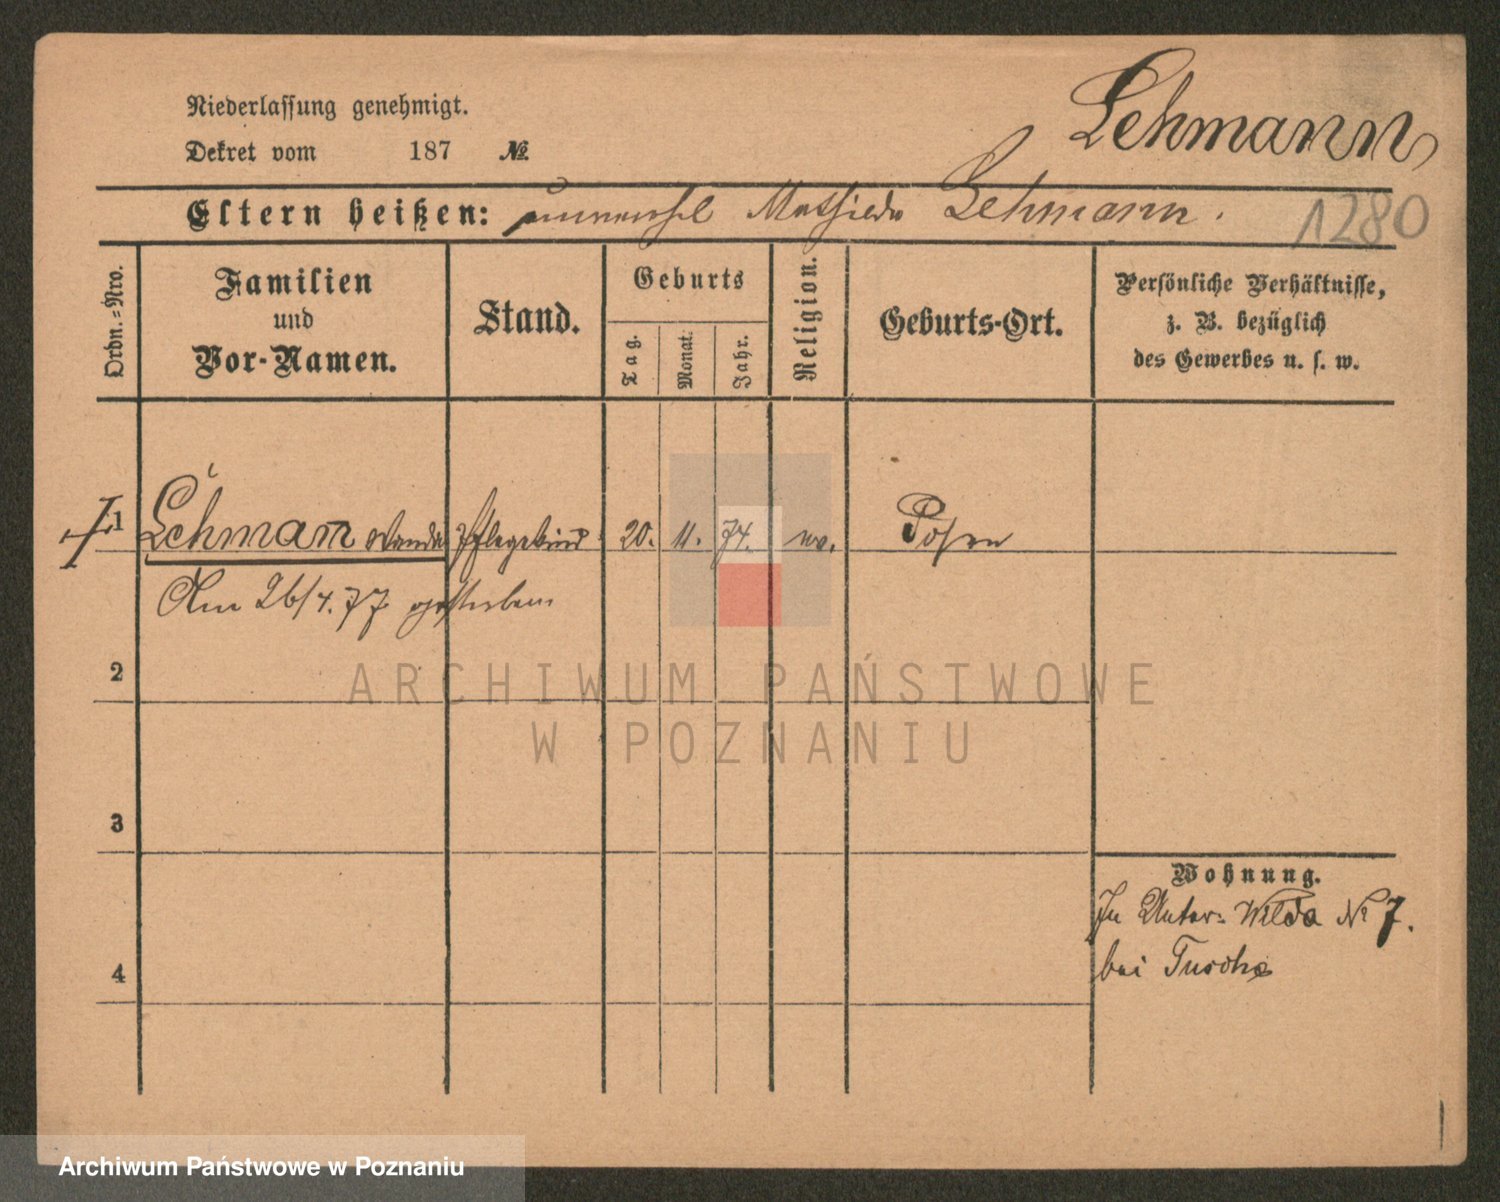 Lehmann
Niederlassung genehmigt.
Dekret vom 187 №
Eltern heißen: unverehel Mathilde Lehmann.
1280
Ordn.=Nro.
Familien
und
Vor-Namen.
Stand.
Geburts
Tag.
Monat.
Jahr.
Religion.
Geburts-Ort.
Persönliche Verhältnisse,
z. B. bezüglich
des Gewerbes u. s. w.
1 Lehmann Wanda Pflegekind 20. 11. 74. ev. Posen
Am 26/4.77 gestorben
2
3
4
Wohnung.
In Unter= Wilda № 7.
bei
ARCHIWUM PAŃSTWOWE
W POZNANIU
Archiwum Państwowe w Poznaniu